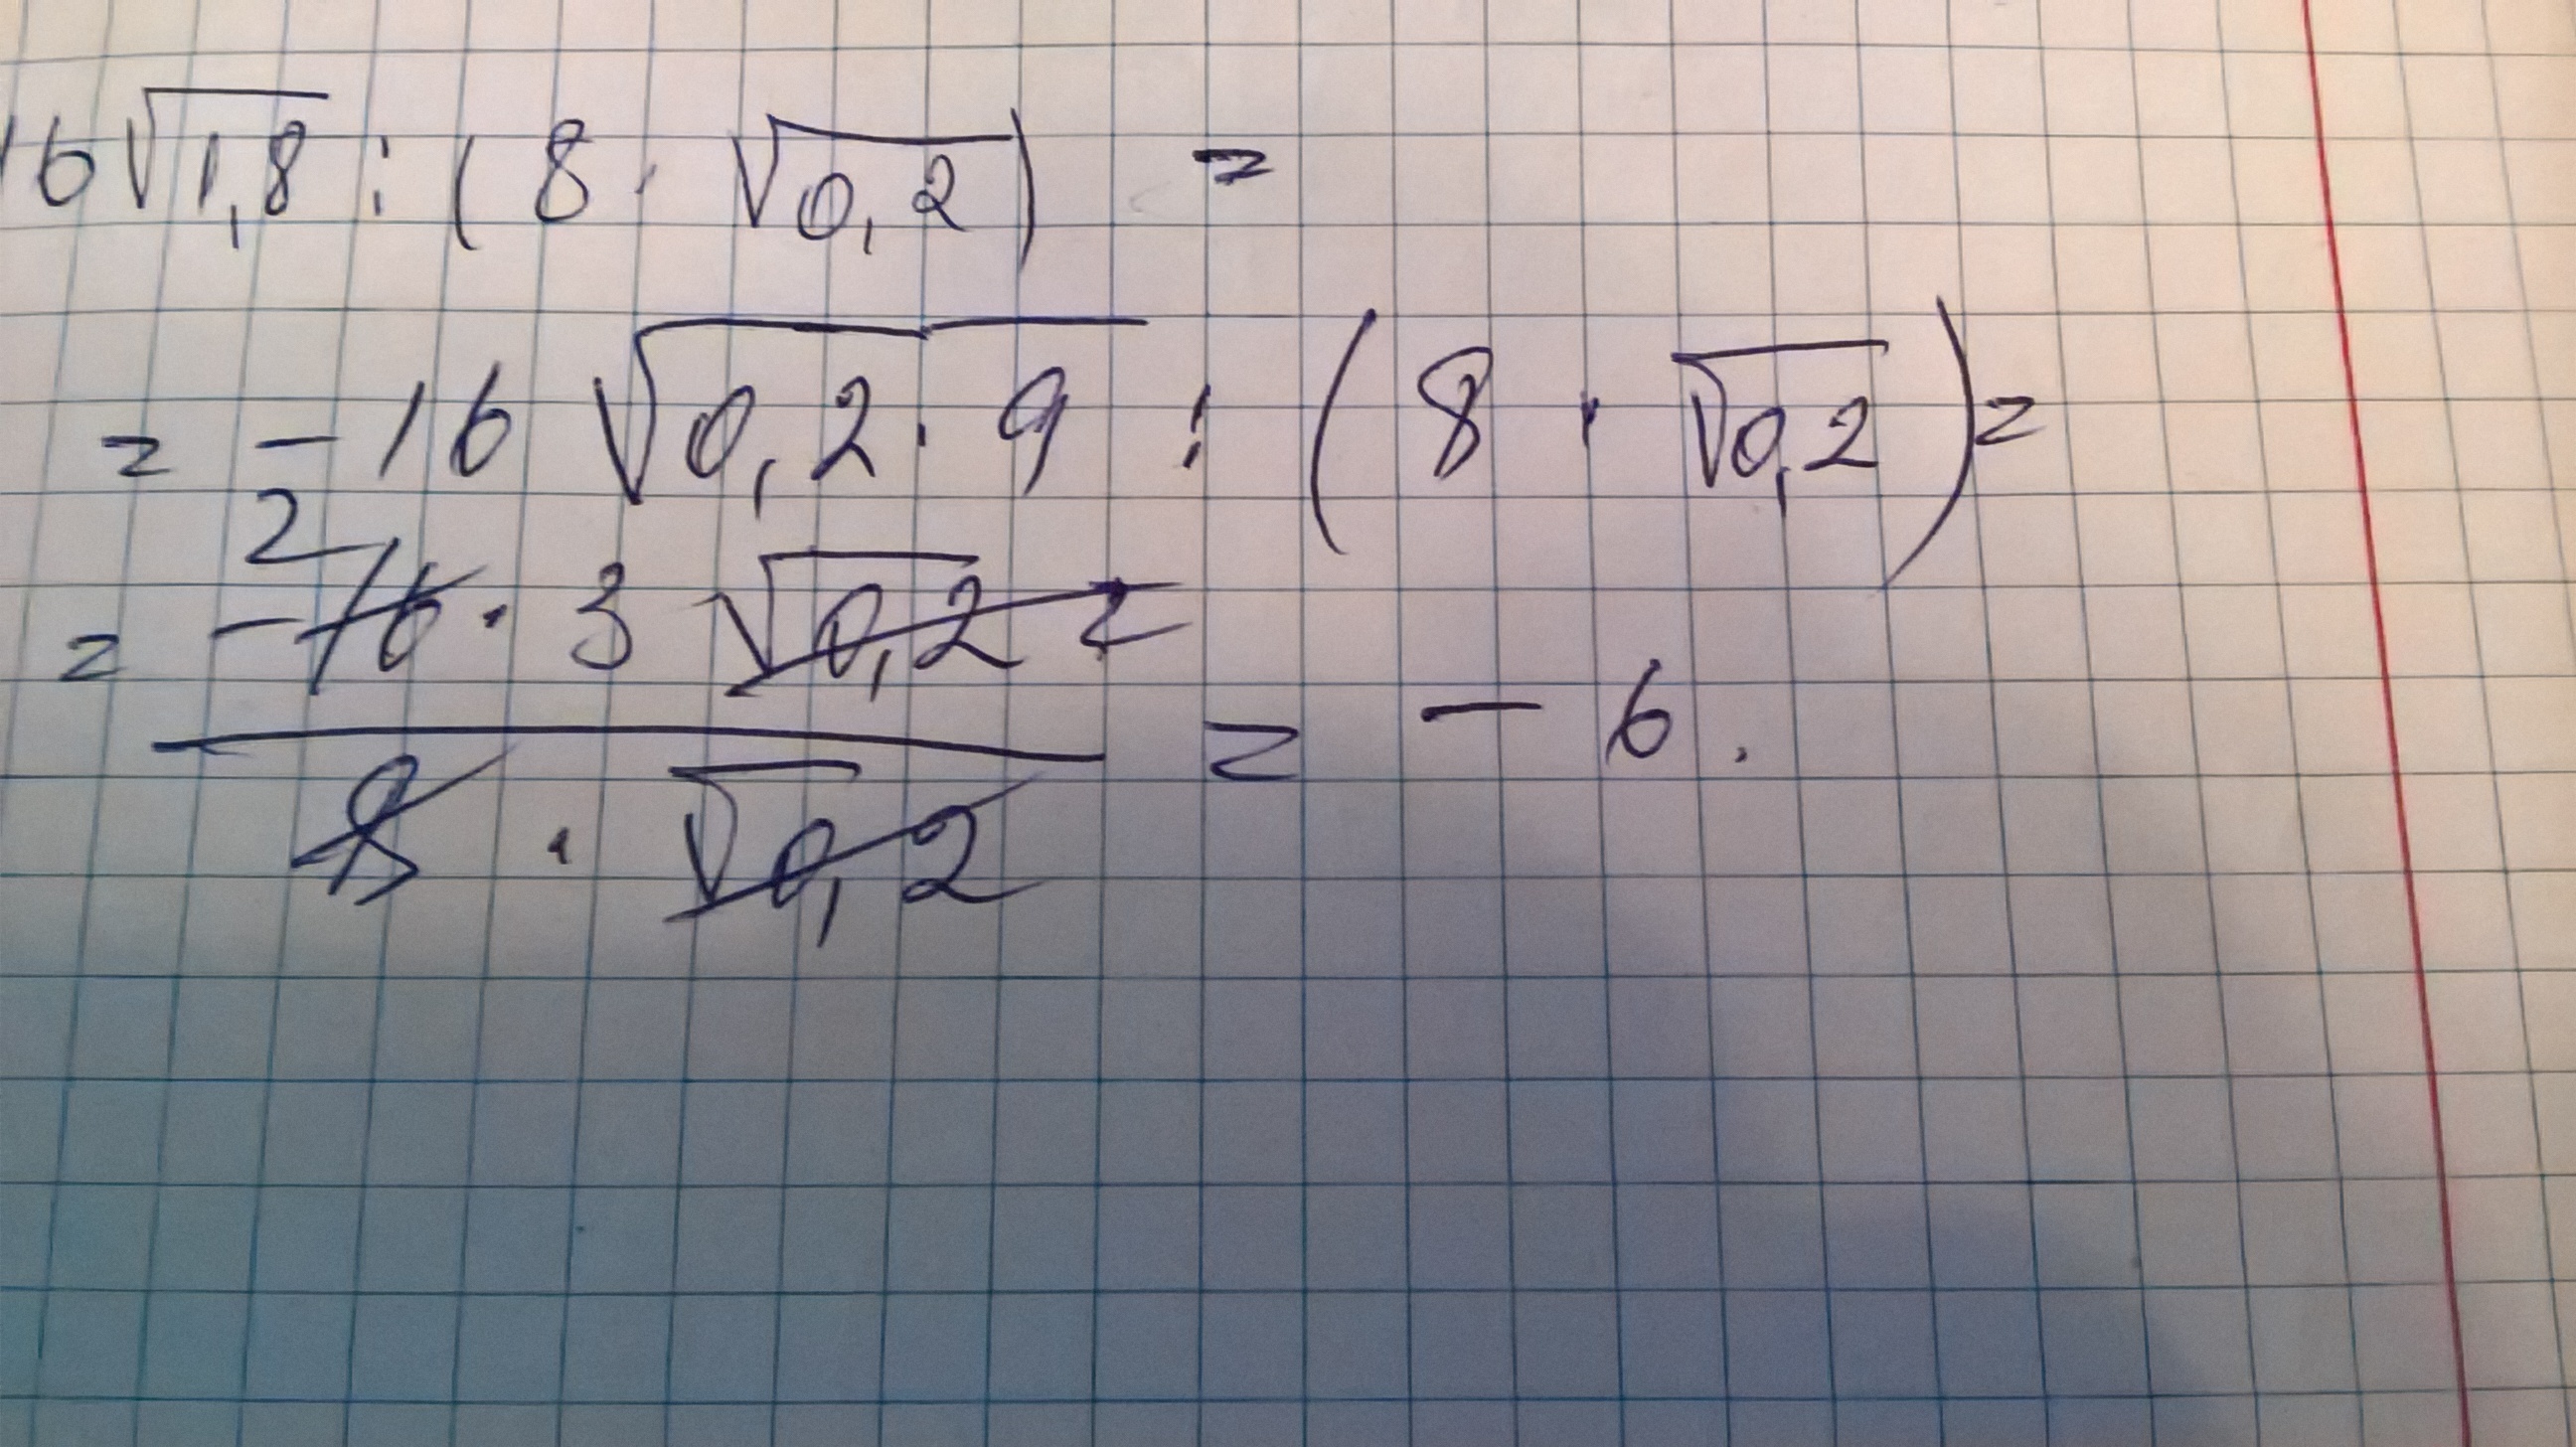 16√1,8 : (8 · √0,2) =
= -16 √0,2 · 9 : (8 · √0,2) =
2
= -16 · 3 √0,2 = -6.
8 · √0,2